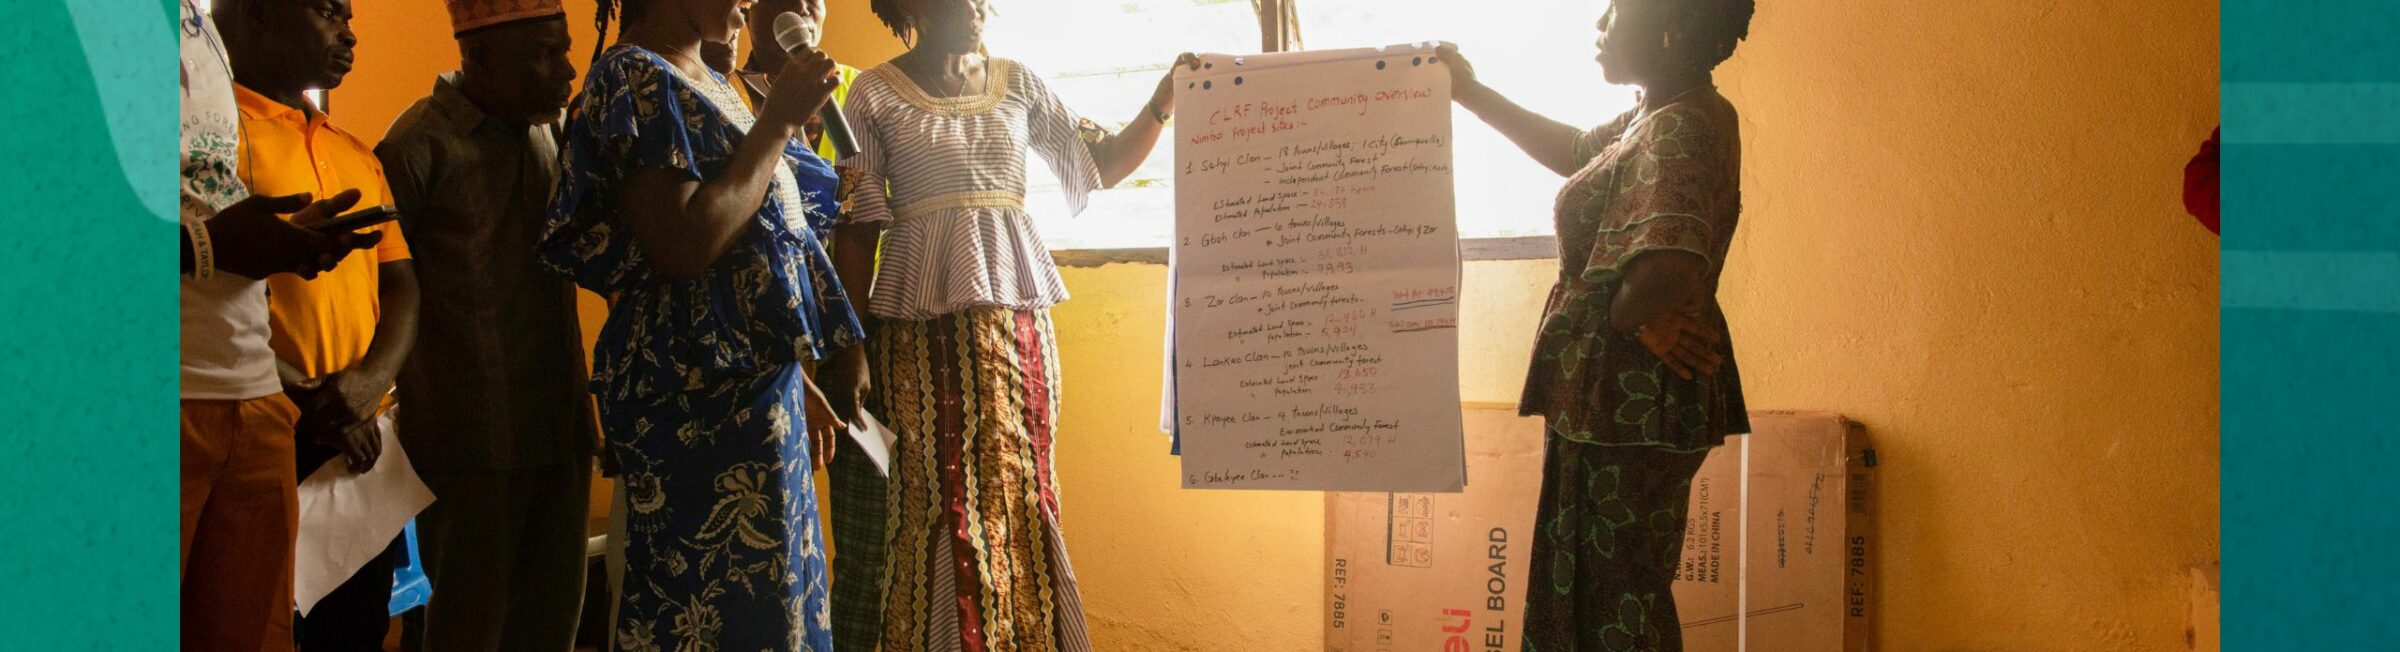 CLRF Project Community Overview
Nimba Project Sites:-
1. Sehyi Clan - 18 towns/villages; 1 City
- Joint Community Forest
- Independent Community Forest
Estimated Land Space -
Estimated Population - 24,058
2. Gbah Clan - 6 towns/villages
* Joint Community Forests - Sehyi & Zor
Estimated Land Space - 31,812 H
" Population - 9,993
3. Zor Clan - 10 towns/villages
* Joint Community forests.
Estimated Land Space - 12,466 H
" Population - 5,924
4. Lankao Clan - 10 towns/villages
joint Community forest
Estimated Land Space: 19,650
" Population 4,933
5. Kpayee Clan - 4 towns/villages
Earmarked Community Forest
Estimated Land Space 12,079 H
" Population: 4,540
6. Clan --- ??
REF: 7885
SEL BOARD
G.W.: 6.2 KGS
MEAS.: 101x5.5x71(CM³)
MADE IN CHINA
REF: 7885